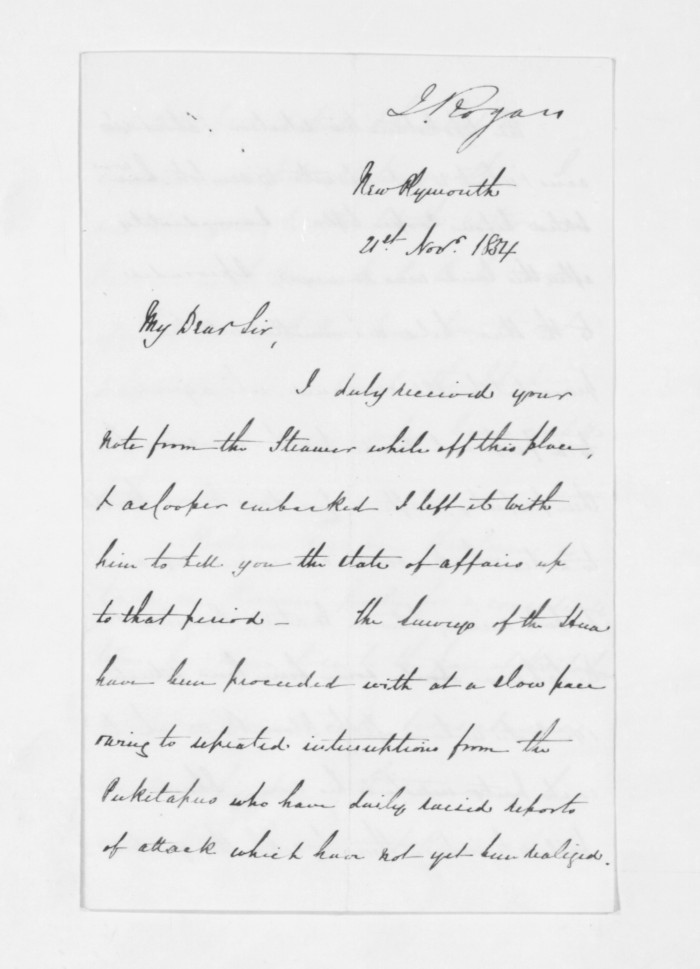 J. Rogan
New Plymouth
21st Novr 1854
My Dear Sir,
I duly received your
note from the Steamer while off this place,
& as Cooper embarked I left it with
him to tell you the state of affairs up
to that period - The Surveys of the Hua
have been proceeded with at a slow pace
owing to repeated interruptions from the
Puketapus who have daily raised reports
of attack which have not yet been realized.